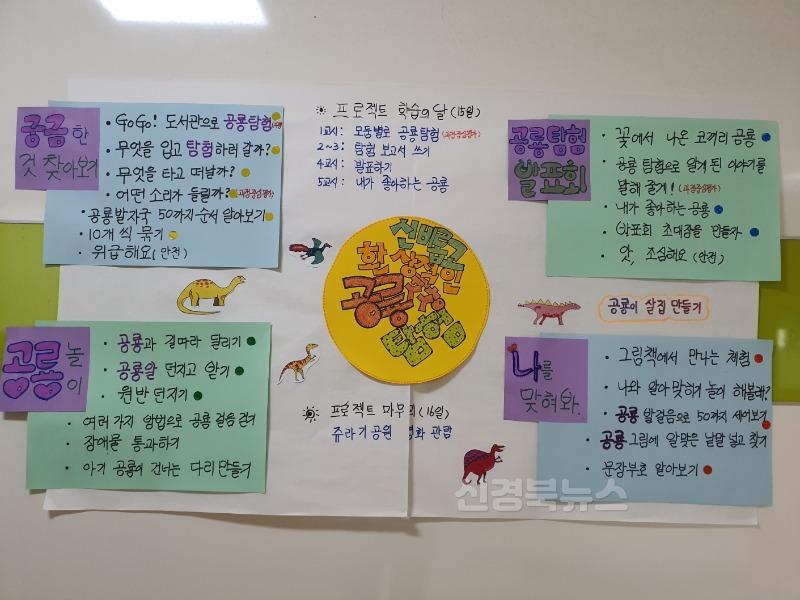 궁금한
것 찾아보기
• GoGo! 도서관으로 공룡탐험
• 무엇을 입고 탐험하러 갈까?
• 무엇을 타고 떠날까?
• 어떤 소리가 들릴까? (과정중심평가)
• 공룡발자국 50까지 순서 알아보기
• 10개 씩 묶기
• 위급해요 (안전)
프로젝트 학습의 날 (15일)
1교시: 모둠별로 공룡탐험 (과정중심평가)
2~3: 탐험 보고서 쓰기
4교시: 발표하기
5교시: 내가 좋아하는 공룡
공룡탐험
발표회
• 꽃에서 나온 코끼리 공룡
• 공룡 탐험으로 알게 된 이야기를
말해 줄게! (과정중심평가)
• 내가 좋아하는 공룡
• 발표회 초대장을 만들자
• 앗, 조심해요 (안전)
환상적인
공룡
탐험
공룡이 살집 만들기
공룡놀이
• 공룡과 길따라 달리기
• 공룡알 던지고 받기
• 원반 던지기
• 여러 가지 방법으로 공룡 걸음 걷기
• 장애물 통과하기
• 아기 공룡이 건너는 다리 만들기
프로젝트 마무리 (16일)
쥬라기공원 영화 관람
나를
맞혀봐.
• 그림책에서 만나는 체험
• 나와 알아 맞히기 놀이 해볼래?
• 공룡 발걸음으로 50까지 세어보기
• 공룡 그림에 알맞은 낱말 넣고 찾기
• 문장부호 알아보기
신경북뉴스